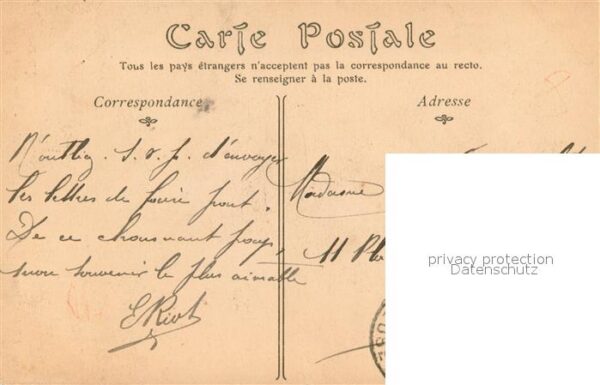 Carte Postale
Tous les pays étrangers n'acceptent pas la correspondance au recto.
Se renseigner à la poste.
Correspondance
Adresse
N'oubliez s. v. p. d'envoyer
les lettres de
De ce charmant pays,
mon souvenir le plus aimable
E Riot
Madame
11
privacy protection
Datenschutz